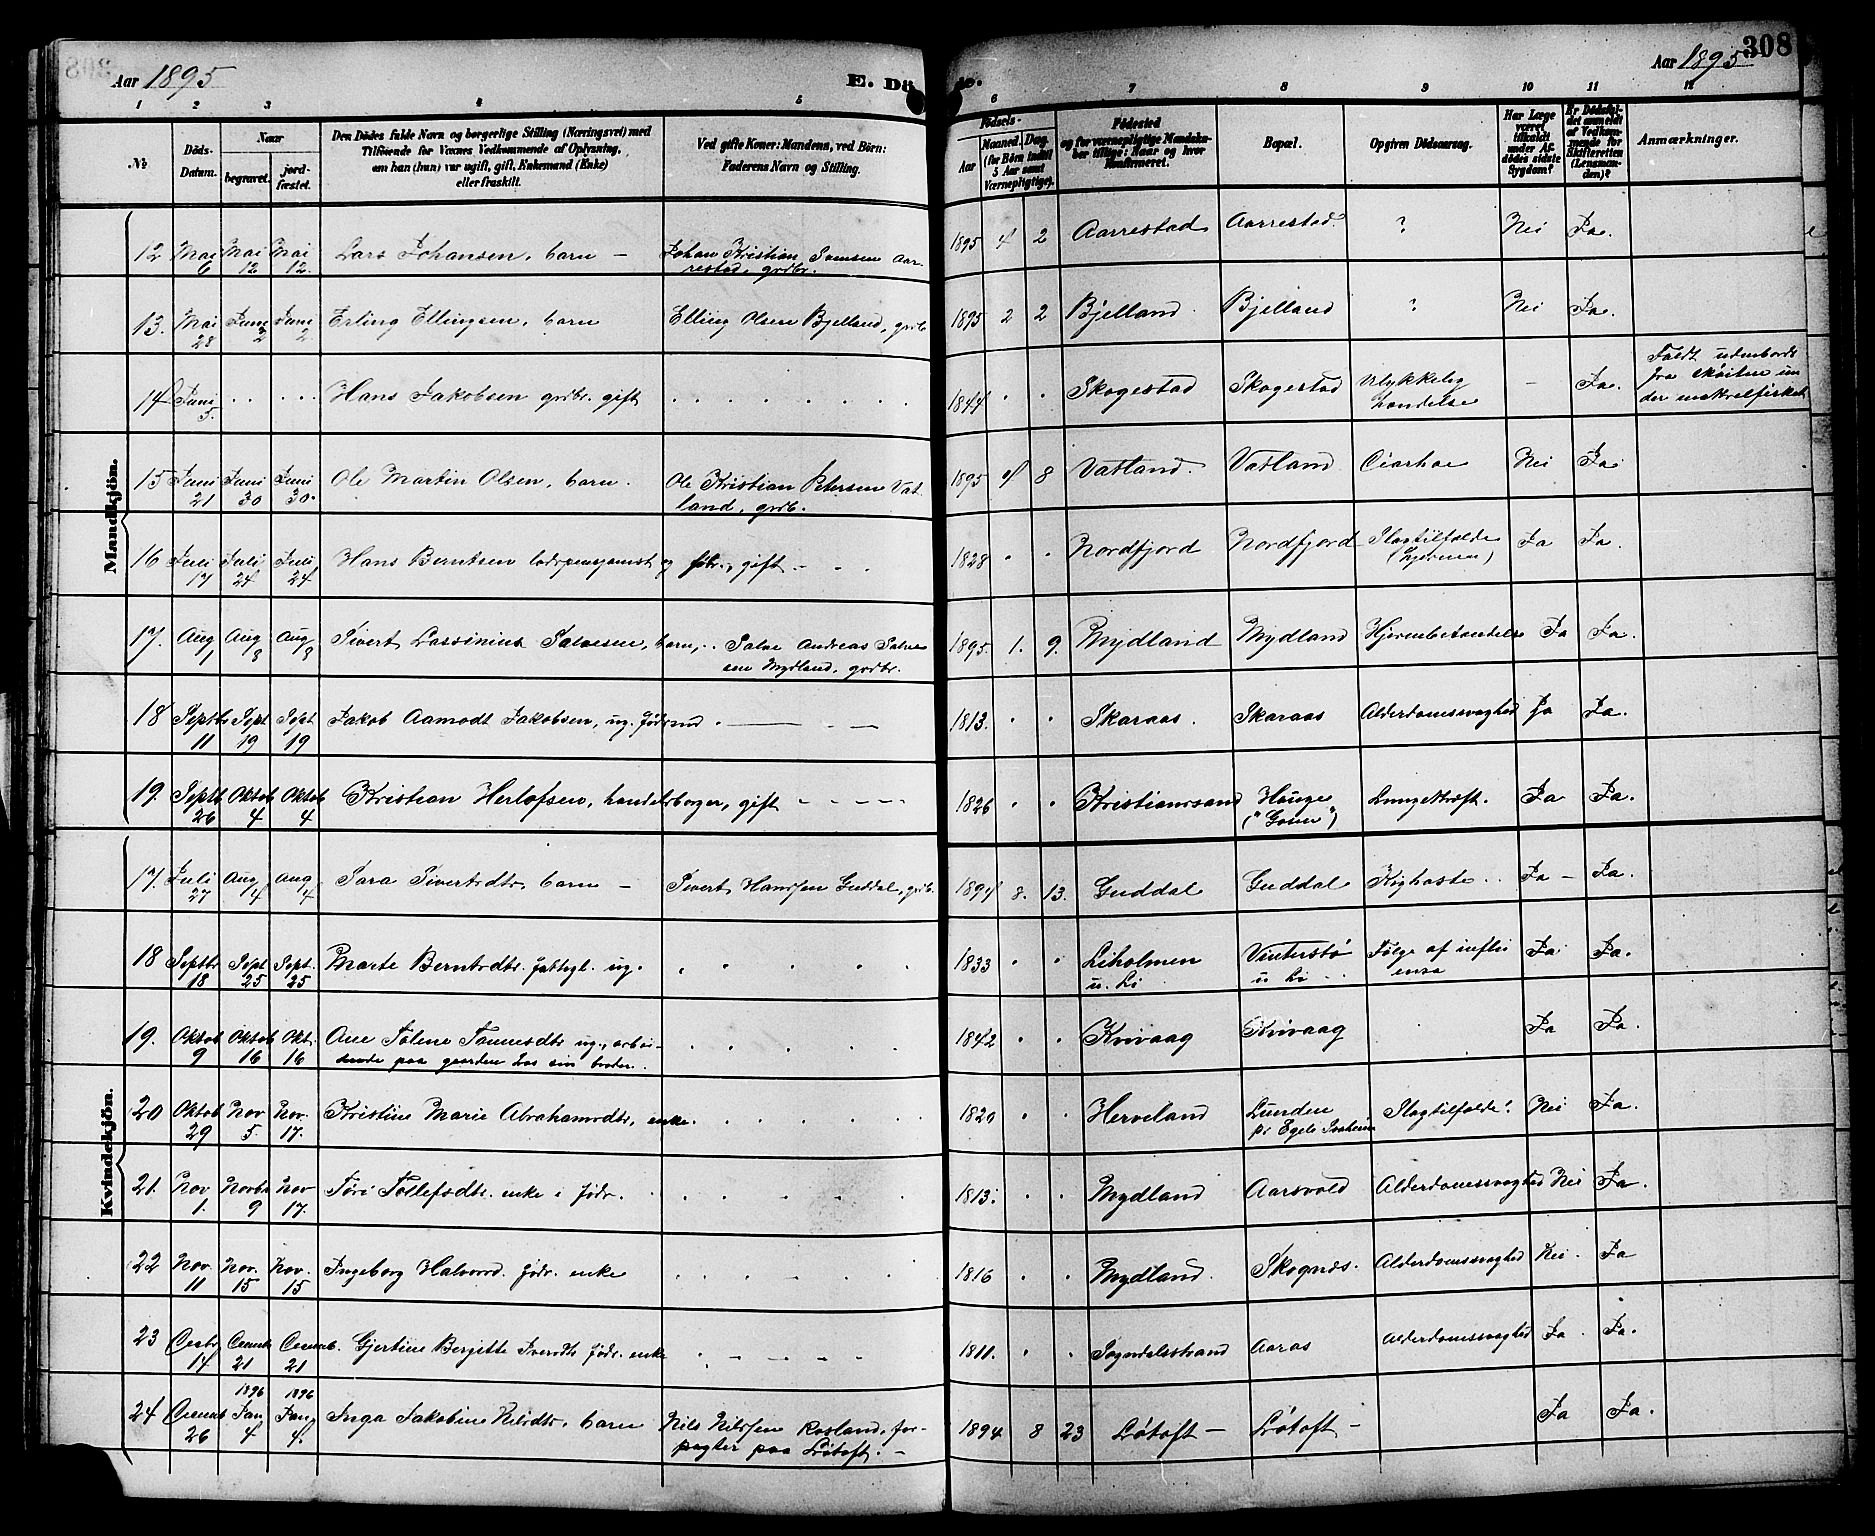 308
Aar 1895
E. Dö
de.
Aar 1895
1 2 3 4 5 6 7 8 9 10 11 12
№
Döds-Datum.
Naar
begravet.
jord-fæstet.
Den Dödes fulde Navn og borgerlige Stilling (Næringsvei) med
Tilföiende for Voxnes Vedkommende af Oplysning,
om han (hun) var ugift, gift, Enkemand (Enke)
eller fraskilt.
Ved gifte Koner: Mandens, ved Börn:
Faderens Navn og Stilling.
Födsels-
Aar
Maaned. Dag.
(for Börn indtil
5 Aar samt
Værnepligtige).
Födested
og for værnepligtige Mandska-
ber tillige: Naar og hvor
Konfirmeret.
Bopæl.
Opgiven Dödsaarsag.
Har Læge
været
tilkaldt
under Af-
dödes sidste
Sygdom?
Er Dödsfal-
det anmeldt
af Vedkom-
mende for
Skifteretten
(Lensman-
den)?
Anmærkninger.
Mandkjön.
12 Mai 6 Mai 12 Mai 12. Lars Johansen, barn – Johan Kristian Samsen Aar-
restad, grdbr. 1895 4 2 Aarrestad Aarrestad. ? Nei Ja.
13. Mai 28 Juni 2 Juni 2. Erling Ellingsen, barn Elling Olsen Bjelland, grdb 1895 2 2 Bjelland. Bjelland ? Nei Ja.
14 Juni 5. Hans Jakobsen grdbr. gift 1844 Skogestad Skogestad Ulykkelig
hændelse – Ja. Faldt udenbords
fra skøiten un
der makrelfisket
15 Juni 21 Juni 30 Juni 30. Ole Martin Olsen, barn. Ole Kristian Petersen Vat-
land, grdb. 1895 4 8 Vatland. Vatland Nei Ja
16 Juli 17 Juli 24 Juli 24 Hans Berntsen lodspensjonist og gift 1828 Nordfjord Nordfjord Slagtilfælde
(hjernen) Ja Ja.
17. Aug 1 Aug 8 Aug 8 Sivert Lassinius Salvesen, barn, Salve Andreas Salve
sen Mydland, grdbr. 1895 1. 9. Mydland Mydland Hjernebetændelse Ja Ja.
18 Septb 11 Sept 19 Sept 19 Jakob Aamodt Jakobsen, ug. 1813. Skaraas. Skaraas Alderdomssvaghed Ja Ja.
19. Septb 26 Oktob 4 Oktob 4 Kristian Herlofsen, handelsborger, gift 1826 Kristianssand Hauge
Lungekræft. Ja Ja.
Kvindekjön.
17. Juli 27 Aug 4 Aug 4 Sara Sivertsdtr, barn – Sivert Hanssen Guddal, grdb. 1894 8. 13. Guddal Guddal Kighoste Ja – Ja.
18 Septbr 18 Sept 25 Sept. 25 Marte Berntsdtr. fattigl. ug. 1833 Liholmen
u. Li Vinterstø
u Li Følge af influ
ensa Ja Ja.
19. Oktob 9 Oktob 16 Okt. 16 Ane Tolene Tønnesdtr ug., arbei-
dende paa gaarden hos sin broder. 1842 Kvivaag Kvivaag Ja Ja.
20 Oktob 29 Nov 5. Nov. 17. Kristine Marie Abrahamsdtr, enke. 1820 Herveland Lunden
pr Egelo Slagtilfælde. Nei Ja.
21. Nov 1. Novbr 9 Nov 17. Tori Tollefsdtr. enke i fødr. 1813. Mydland Aarsvold Alderdomssvaghed Nei Ja.
22 Nov. 11 Nov. 15 Nov. 15 Ingeborg Halvorsd. fødr. enke 1816 Mydland. Skognæs. Alderdomssvaghed Nei. Ja
23 Decbr 14 Decemb 21 Decemb. 21 Gjertine Bergitte Iversdtr fødr. enke 1811. Sogndalsstrand Aaros Alderdomssvaghed Ja. Ja.
24 Decemb 26 1896 Jan 4 1896 Jan 4. Inga Jakobine Nilsdtr. barn Nils Nilssen Rosland, for-
pagter paa Løtoft. – 1894 8 23 Løtoft – Løtoft – Ja Ja.